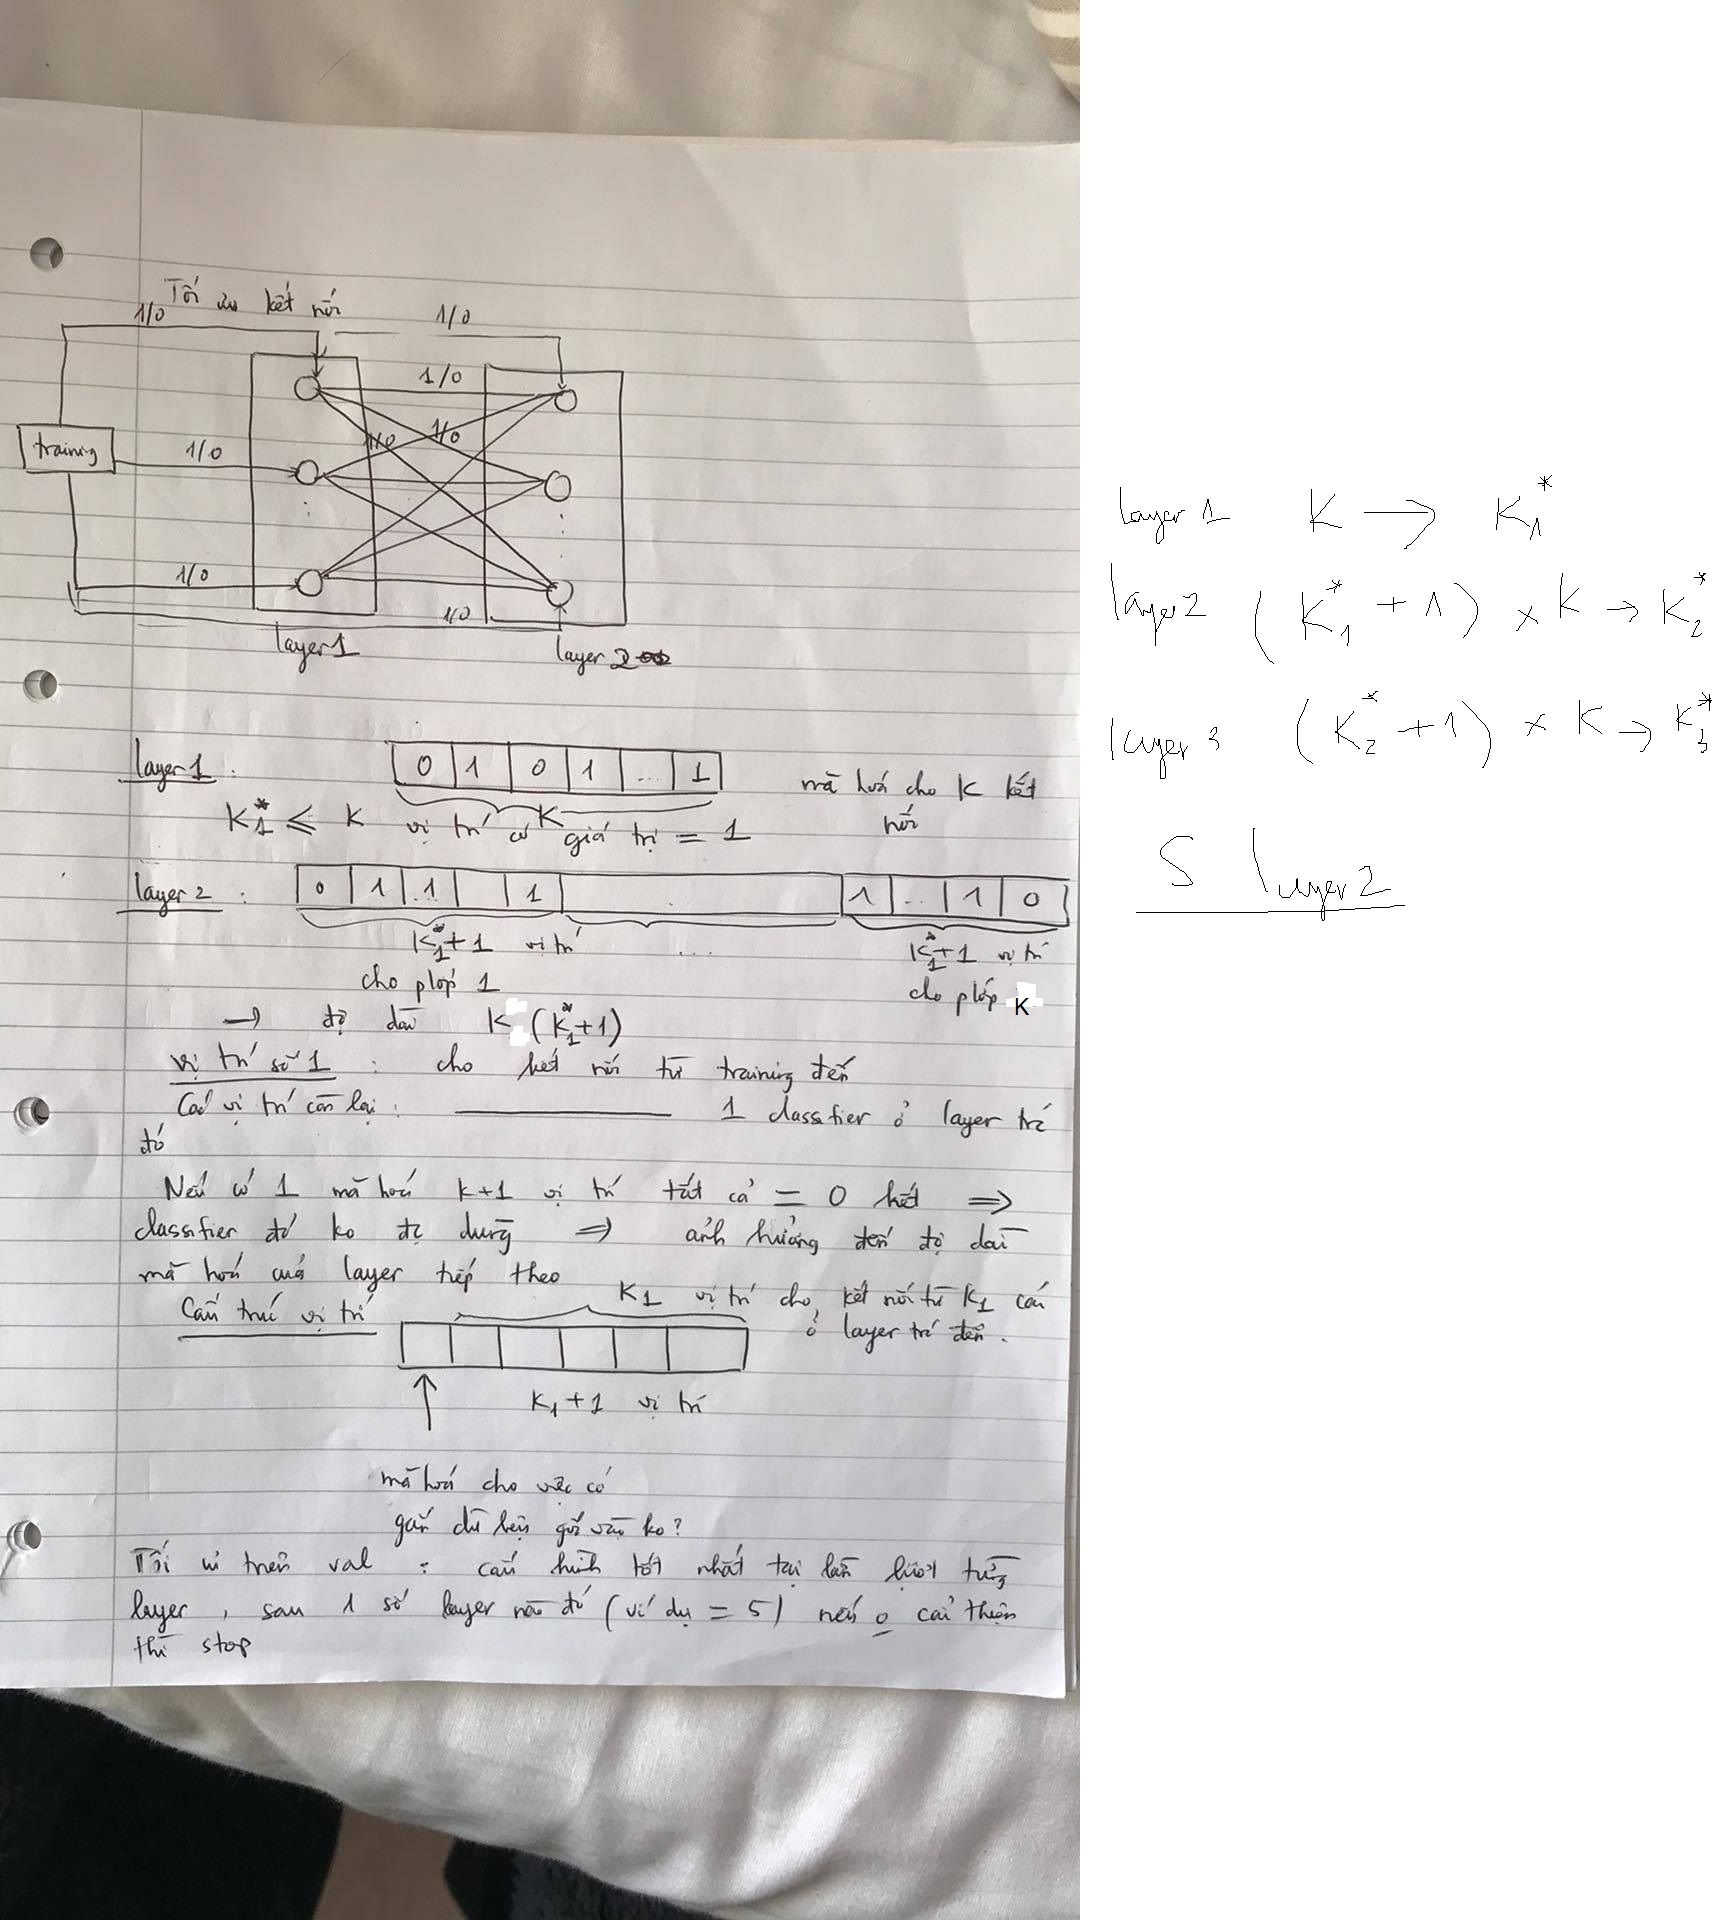 Tối ưu kết nối
1/0
1/0
1/0
1/0
1/0
training
1/0
1/0
1/0
layer 1
layer 2
layer 1 :
0 1 0 1 ... 1
K
mã hoá cho K kết nối
K₁* ≤ K vị trí có giá trị = 1
layer 2 :
0 1 1 .. 1 . 1 .. 1 0
K₁*+1 vị trí
...
K₁*+1 vị trí
cho plớp 1
cho plớp K
→ độ dài K (K₁*+1)
vị trí số 1 : cho kết nối từ training đến
Các vị trí còn lại : ——— 1 classifier ở layer trc
đó
Nếu có 1 mã hoá K+1 vị trí tất cả = 0 hết ⇒
classifier đó ko đc dùng ⇒ ảnh hưởng đến độ dài
mã hoá của layer tiếp theo
K₁ vị trí cho kết nối từ K₁ cái
ở layer trc đến.
Cấu trúc vị trí
K₁+1 vị trí
mã hoá cho việc có
gắn dữ liệu gốc vào ko?
Tối ưu trên val : cấu hình tốt nhất tại lần lượt từng
layer, sau 1 số layer nào đó (ví dụ = 5) nếu o cải thiện
thì stop
layer 1 K → K₁*
layer 2 (K₁* + 1) × K → K₂*
layer 3 (K₂* + 1) × K → K₃*
S layer 2